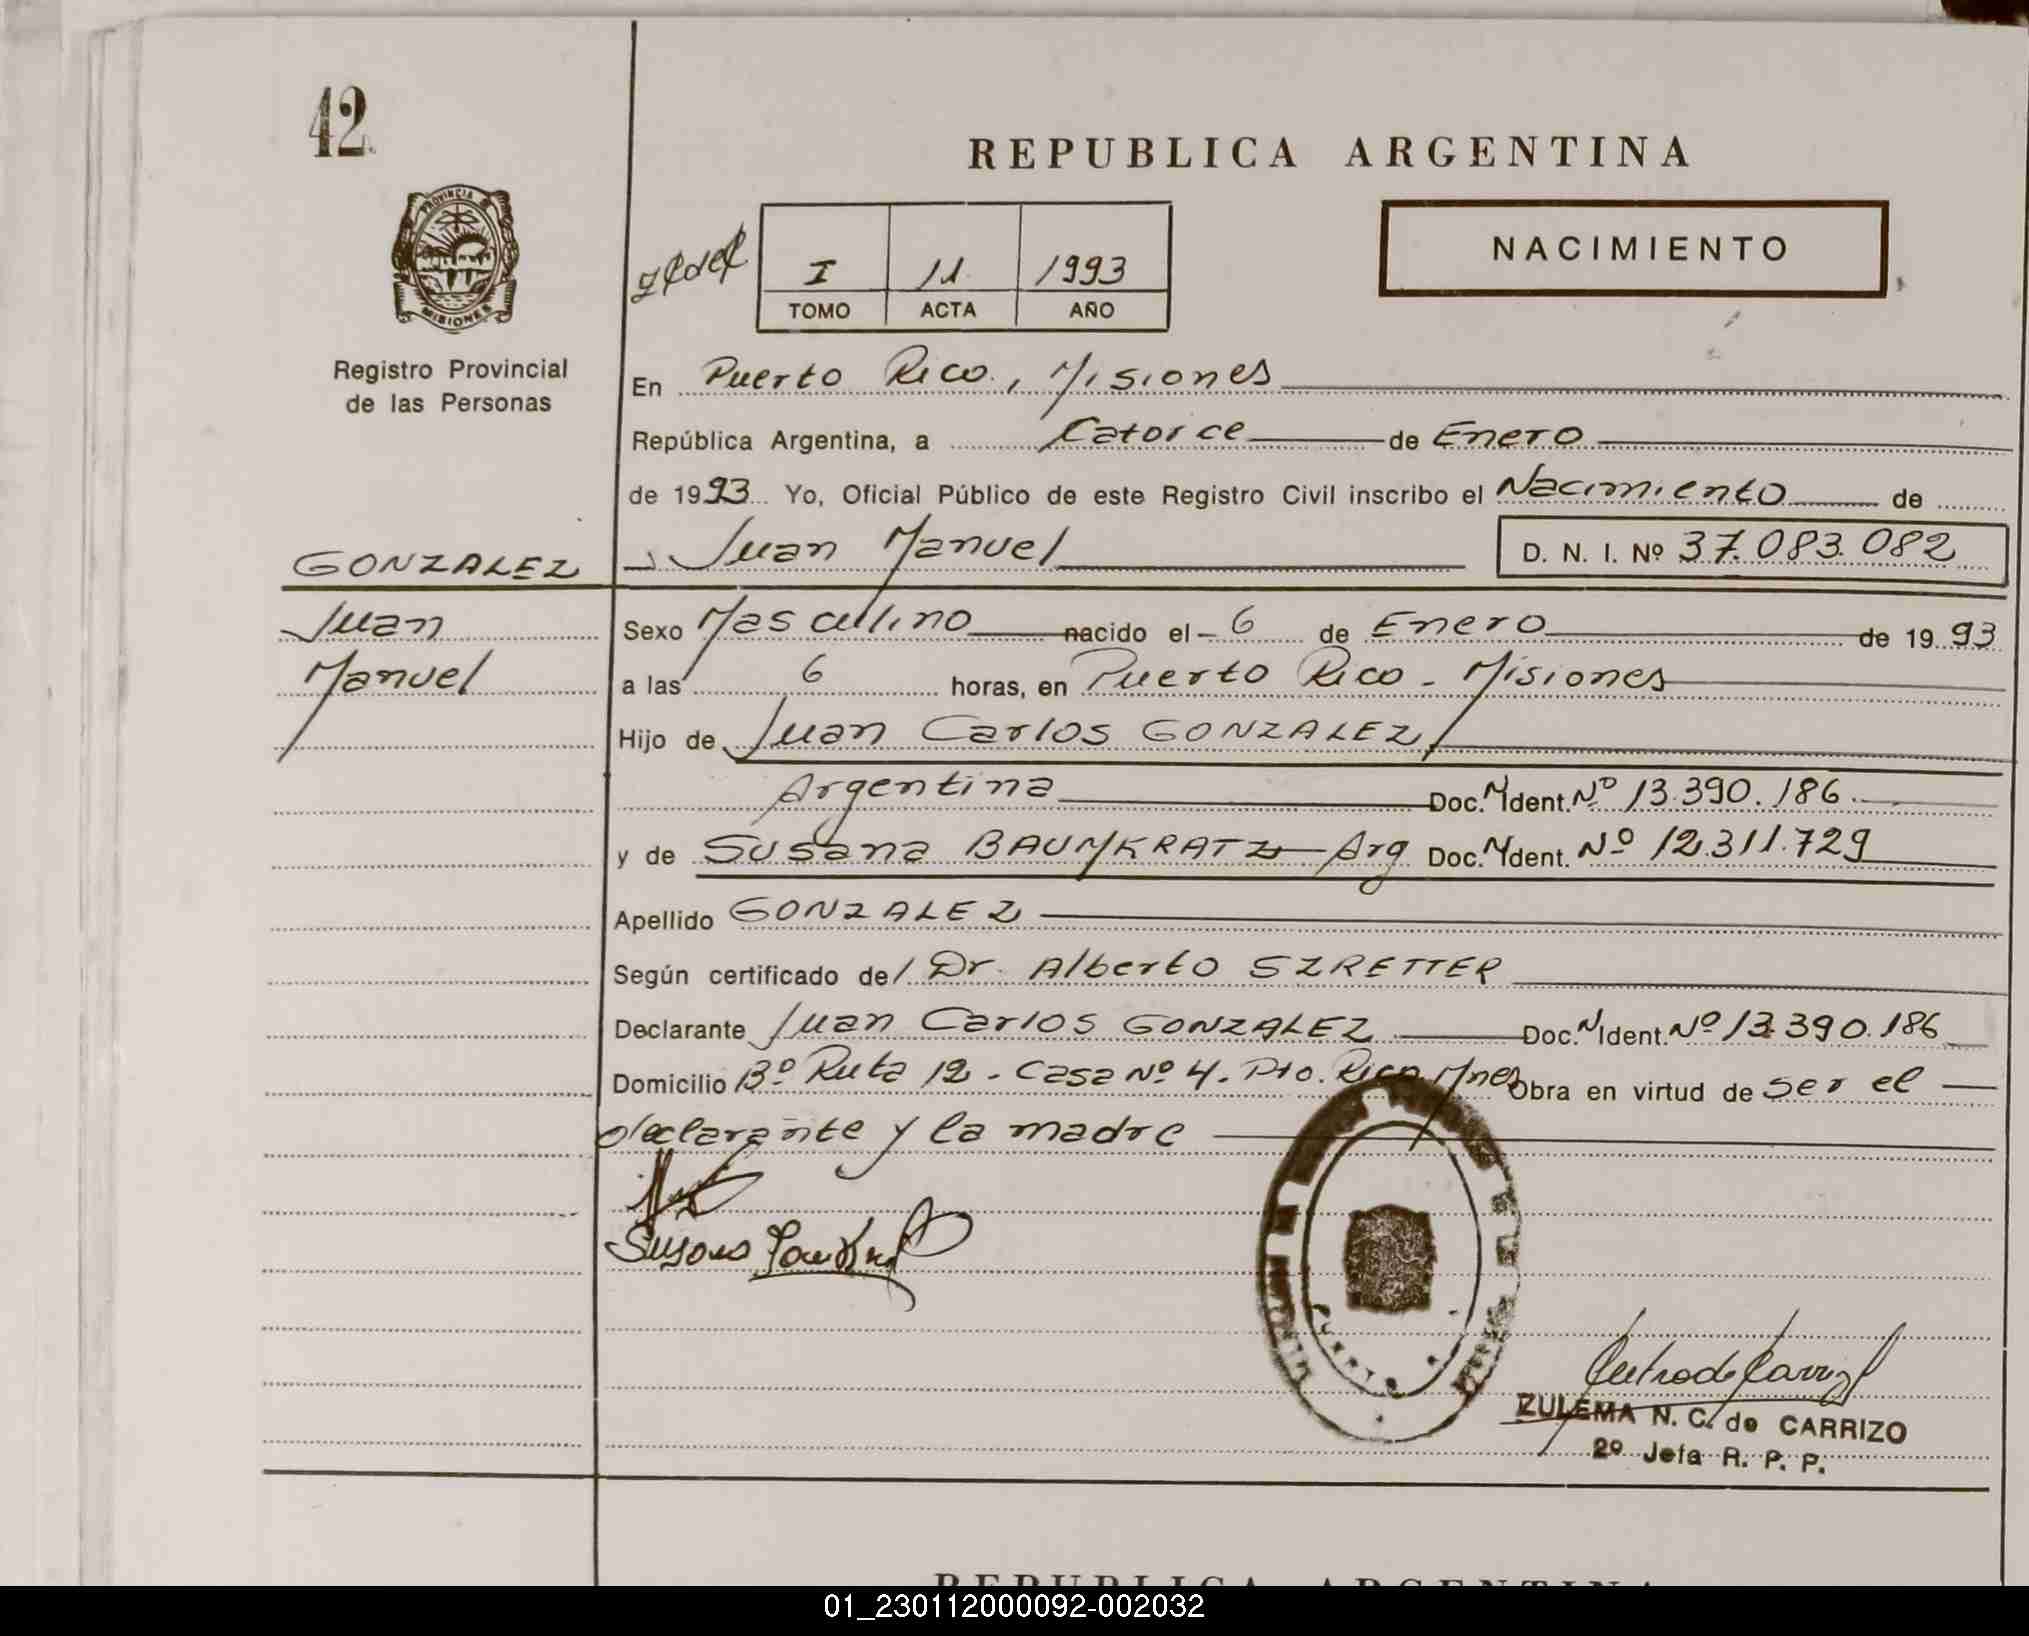 42
REPUBLICA ARGENTINA
PROVINCIA DE
MISIONES
Registro Provincial
de las Personas
I 11 1993
TOMO ACTA AÑO
NACIMIENTO
En Puerto Rico, Misiones
República Argentina, a Catorce de Enero
de 1993 Yo, Oficial Público de este Registro Civil inscribo el Nacimiento de
GONZALEZ Juan Manuel D. N. I. Nº 37.083.082
Juan Sexo Masculino nacido el 6 de Enero de 1993
Manuel a las 6 horas, en Puerto Rico - Misiones
Hijo de Juan Carlos GONZALEZ
Argentina Doc. N Ident. Nº 13.390.186
y de Susana BAUMKRATZ Arg Doc. N Ident. Nº 12.311.729
Apellido GONZALEZ
Según certificado del Dr. Alberto SZRETTER
Declarante Juan Carlos GONZALEZ Doc. N Ident. Nº 13.390.186
Domicilio Bº Ruta 12 - Casa Nº 4. Pto. Rico Mnes Obra en virtud de ser el
declarante y la madre
Susana
PUERTO
ZULEMA N. C. de CARRIZO
2º Jefa R. P. P.
REPUBLICA ARGENTINA
01_230112000092-002032